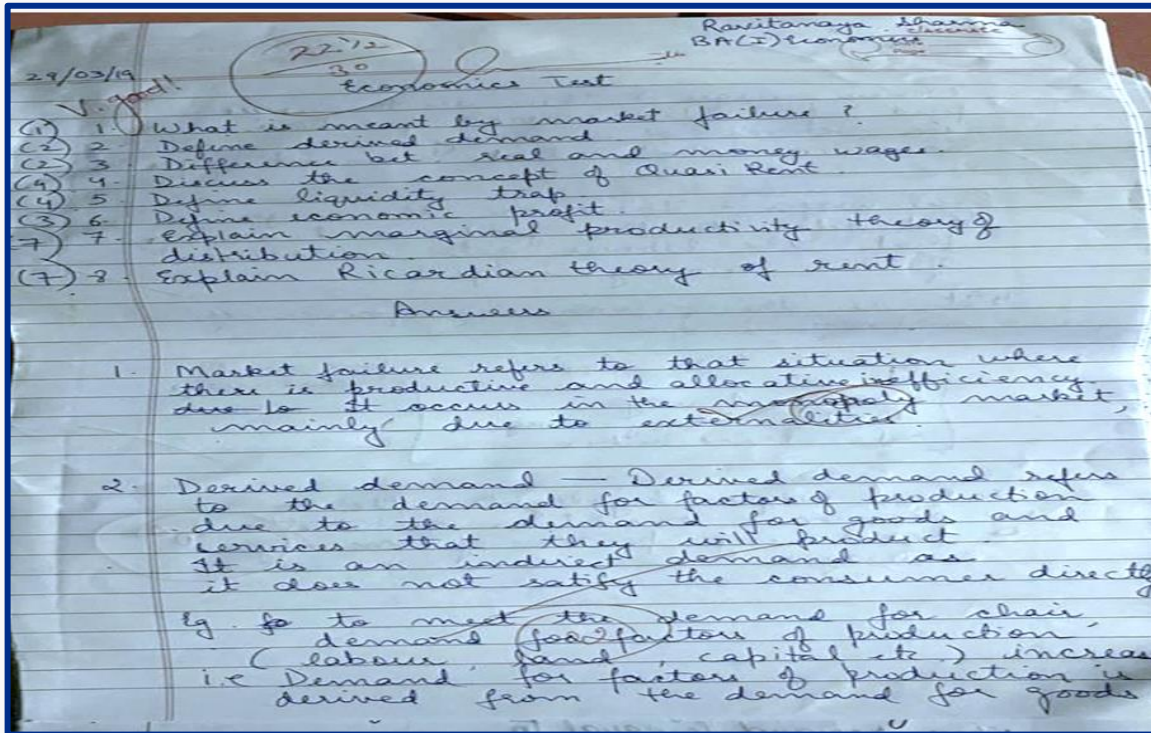 Sharma
BA(I) Economics
22 1/2
30
29/03/19
Economics Test
V. good!
(1) 1. What is meant by market failure ?
(2) 2 Define derived demand
(2) 3 Difference bet real and money wages.
(4) 4. Discuss the concept of Quasi Rent.
(4) 5 Define liquidity trap
(3) 6. Define economic profit.
(7) 7. Explain marginal productivity theory of
distribution.
(7) 8 Explain Ricardian theory of rent.
Answers
1. Market failure refers to that situation where
there is productive and allocative inefficiency
due to It occurs in the monopoly market,
mainly due to externalities.
2. Derived demand — Derived demand refers
to the demand for factors of production
due to the demand for goods and
services that they will product.
It is an indirect demand as
it does not satify the consumer directly
Eg. fo to meet the demand for chair,
demand for factors of production
(labour, land, capital etc.) increas
i.e Demand for factors of production is
derived from the demand for goods